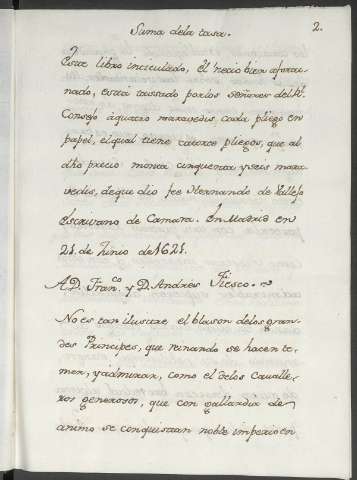 2.
Suma dela tasa.
Este libro intitulado, El necio bien afortu-
nado, está tassado por los señores del Rl.
Consejo á quatro maravedis, cada pliego en
papel, el qual tiene catorce pliegos, que al
dho precio monta cinquenta y seis mara
vedis, de que dio fee Hernando de Vallejo
escrivano de Camara. En Madrid en
21. de Junio de 1621.
A D. Franco. y D. Andrés Fiesco.
No es tan ilustre el blason delos gran-
des Principes, que reinando se hacen te-
mer, y admirar, como el delos Cavalle-
ros generosos, que con gallardia de
animo se conquistan noble imperio en